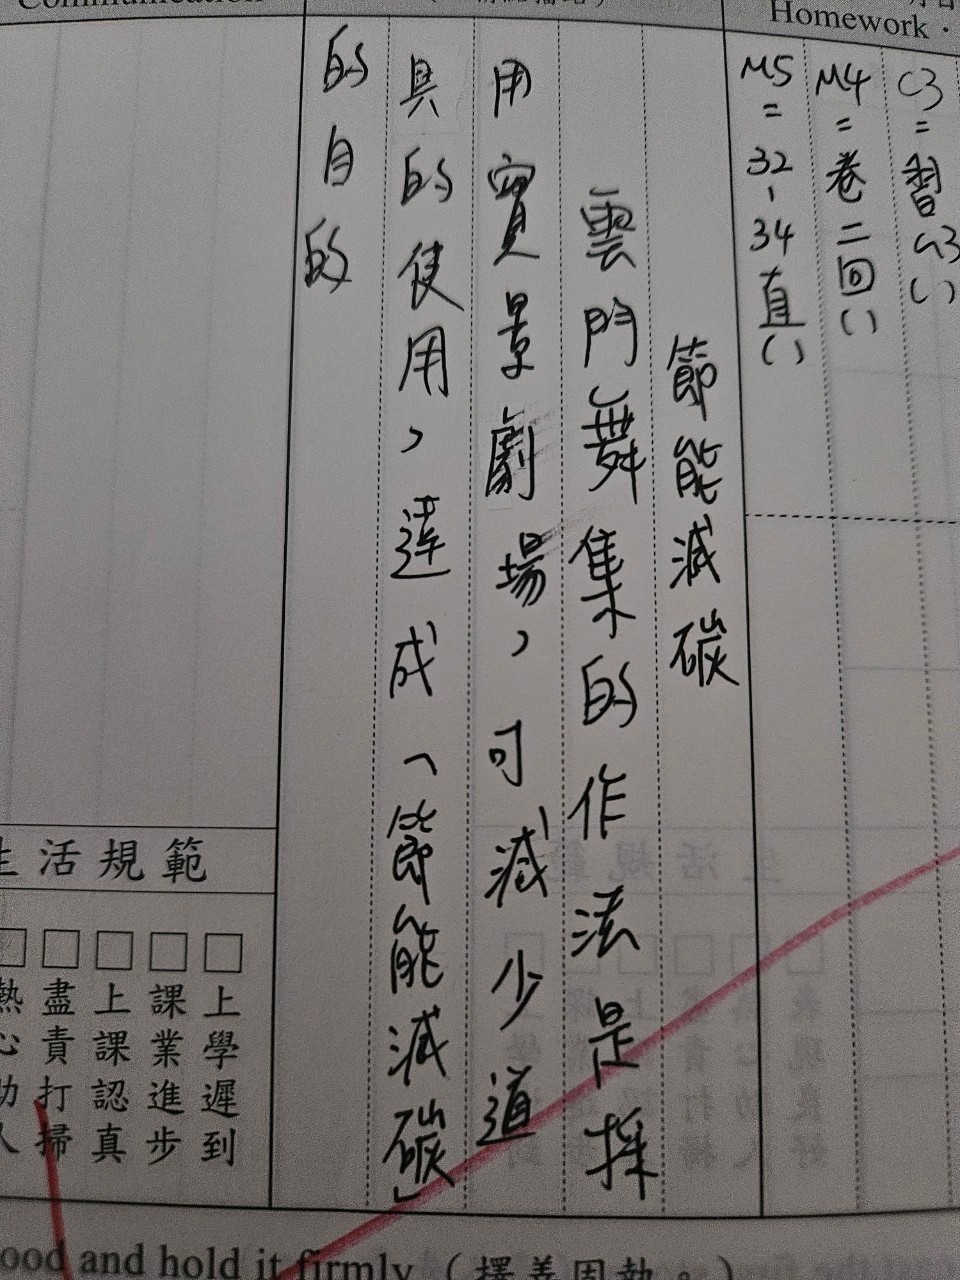 Homework・
C3=習L3()
M4=卷二回()
M5=32、34直()
節能減碳
雲門舞集的作法是採
用實景劇場，可減少道
具的使用，達成「節能減碳」
的自的
生活規範
□上學遲到
□課業進步
□上課認真
□盡責打掃
□熱心助人
ood and hold it firmly（擇善固執。）